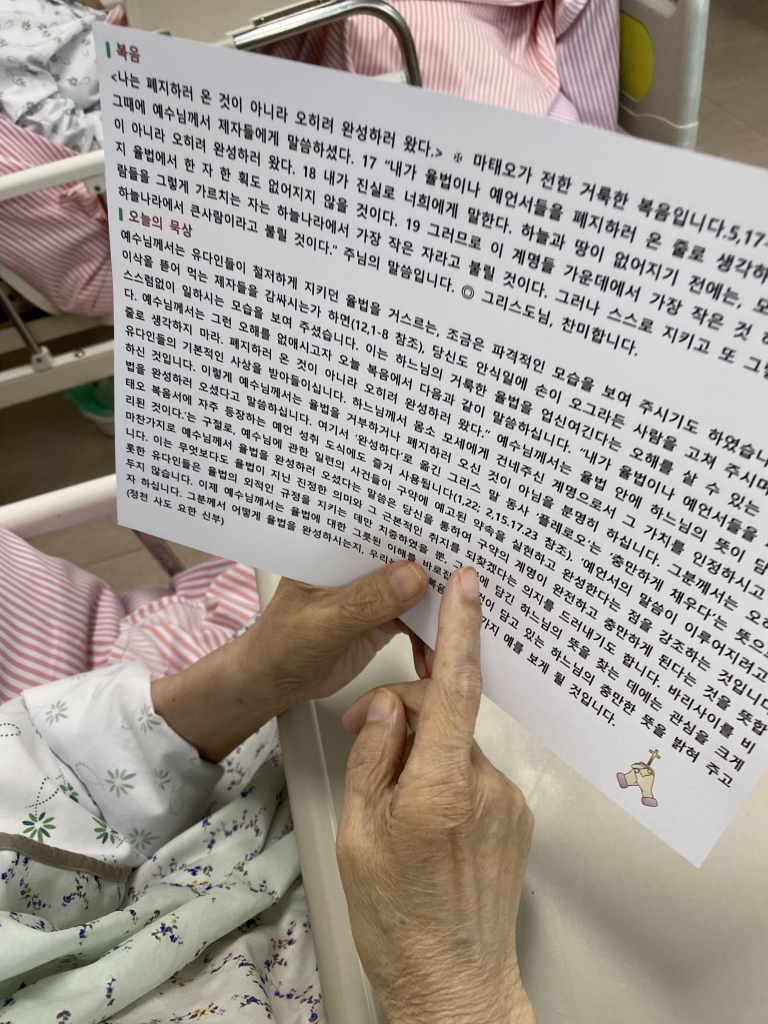 복음
<나는 폐지하러 온 것이 아니라 오히려 완성하러 왔다.> ✠ 마태오가 전한 거룩한 복음입니다.5,17-
그때에 예수님께서 제자들에게 말씀하셨다. 17 "내가 율법이나 예언서들을 폐지하러 온 줄로 생각하
이 아니라 오히려 완성하러 왔다. 18 내가 진실로 너희에게 말한다. 하늘과 땅이 없어지기 전에는, 모
지 율법에서 한 자 한 획도 없어지지 않을 것이다. 19 그러므로 이 계명들 가운데에서 가장 작은 것 하
람들을 그렇게 가르치는 자는 하늘나라에서 가장 작은 자라고 불릴 것이다. 그러나 스스로 지키고 또
하늘나라에서 큰사람이라고 불릴 것이다." 주님의 말씀입니다. ◎ 그리스도님, 찬미합니다.
오늘의 묵상
예수님께서는 유다인들이 철저하게 지키던 율법을 거스르는, 조금은 파격적인 모습을 보여 주시기도 하였습니
이삭을 뜯어 먹는 제자들을 감싸시는가 하면(12,1-8 참조), 당신도 안식일에 손이 오그라든 사람을 고쳐 주시며
스스럼없이 일하시는 모습을 보여 주셨습니다. 이는 하느님의 거룩한 율법을 업신여긴다는 오해를 살 수 있는
다. 예수님께서는 그런 오해를 없애시고자 오늘 복음에서 다음과 같이 말씀하십니다. "내가 율법이나 예언서들을
줄로 생각하지 마라. 폐지하러 온 것이 아니라 오히려 완성하러 왔다." 예수님께서는 율법 안에 하느님의 뜻이 담
유다인들의 기본적인 사상을 받아들이십니다. 하느님께서 몸소 모세에게 건네주신 계명으로서 그 가치를 인정하시고
하신 것입니다. 이렇게 예수님께서는 율법을 거부하거나 폐지하러 오신 것이 아님을 분명히 하십니다. 그분께서는
법을 완성하러 오셨다고 말씀하십니다. 여기서 '완성하다'로 옮긴 그리스 말 동사 '플레로오'는 '충만하게 채우다'는 뜻으
태오 복음서에 자주 등장하는 예언 성취 도식에도 즐겨 사용됩니다(1,22; 2,15.17.23 참조). '예언서의 말씀이 이루어지려고
리된 것이다.'는 구절로, 예수님에 관한 일련의 사건들이 구약에 예고된 약속을 실현하고 완성한다는 점을 강조하는 것입니다
마찬가지로 예수님께서 율법을 완성하러 오셨다는 말씀은 당신을 통하여 구약의 계명이 완전하고 충만하게 된다는 것을 뜻합
니다. 이는 무엇보다도 율법이 지닌 진정한 의미와 그 근본적인 취지를 되찾겠다는 의지를 드러내기도 합니다. 바리사이를 비
롯한 유다인들은 율법의 외적인 규정을 지키는 데만 치중하였을 뿐, 담긴 하느님의 뜻을 찾는 데에는 관심을 크게
두지 않습니다. 이제 예수님께서는 율법에 대한 그릇된 이해를 담고 있는 하느님의 충만한 뜻을 밝혀 주고
자 하십니다. 그분께서 어떻게 율법을 완성하시는지, 복음 가지 예를 보게 될 것입니다.
(정천 사도 요한 신부)